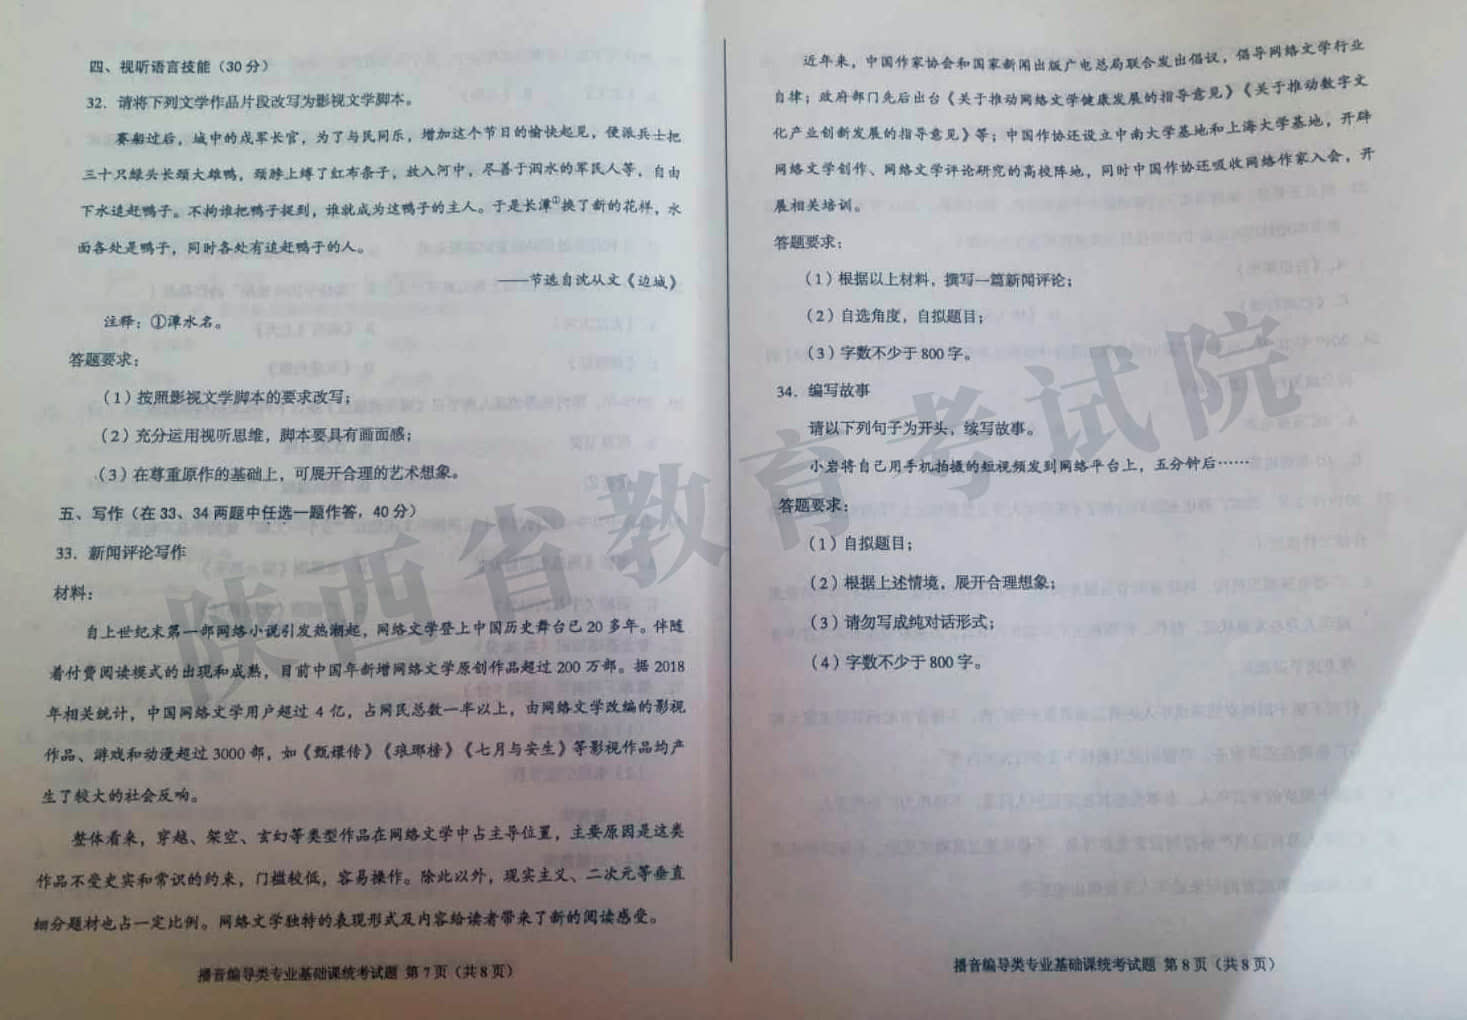 四、视听语言技能（30分）
32．请将下列文学作品片段改写为影视文学脚本。
赛船过后，城中的戍军长官，为了与民同乐，增加这个节日的愉快起见，便派兵士把
三十只绿头长颈大雄鸭，颈膊上缚了红布条子，放入河中，尽善于泅水的军民人等，自由
下水追赶鸭子。不拘谁把鸭子捉到，谁就成为这鸭子的主人。于是长潭①换了新的花样，水
面各处是鸭子，同时各处有追赶鸭子的人。
——节选自沈从文《边城》
注释：①潭水名。
答题要求：
（1）按照影视文学脚本的要求改写；
（2）充分运用视听思维，脚本要具有画面感；
（3）在尊重原作的基础上，可展开合理的艺术想象。
五、写作（在33、34两题中任选一题作答，40分）
33．新闻评论写作
材料：
自上世纪末第一部网络小说引发热潮起，网络文学登上中国历史舞台已20多年。伴随
着付费阅读模式的出现和成熟，目前中国年新增网络文学原创作品超过200万部。据2018
年相关统计，中国网络文学用户超过4亿，占网民总数一半以上，由网络文学改编的影视
作品、游戏和动漫超过3000部，如《甄嬛传》《琅琊榜》《七月与安生》等影视作品均产
生了较大的社会反响。
整体看来，穿越、架空、玄幻等类型作品在网络文学中占主导位置，主要原因是这类
作品不受史实和常识的约束，门槛较低，容易操作。除此以外，现实主义、二次元等垂直
细分题材也占一定比例。网络文学独特的表现形式及内容给读者带来了新的阅读感受。
播音编导类专业基础课统考试题 第7页（共8页）
近年来，中国作家协会和国家新闻出版广电总局联合发出倡议，倡导网络文学行业
自律；政府部门先后出台《关于推动网络文学健康发展的指导意见》《关于推动数字文
化产业创新发展的指导意见》等；中国作协还设立中南大学基地和上海大学基地，开辟
网络文学创作、网络文学评论研究的高校阵地，同时中国作协还吸收网络作家入会，开
展相关培训。
答题要求：
（1）根据以上材料，撰写一篇新闻评论；
（2）自选角度，自拟题目；
（3）字数不少于800字。
34．编写故事
请以下列句子为开头，续写故事。
小岩将自己用手机拍摄的短视频发到网络平台上，五分钟后……
答题要求：
（1）自拟题目；
（2）根据上述情境，展开合理想象；
（3）请勿写成纯对话形式；
（4）字数不少于800字。
播音编导类专业基础课统考试题 第8页（共8页）
陕西省教育考试院